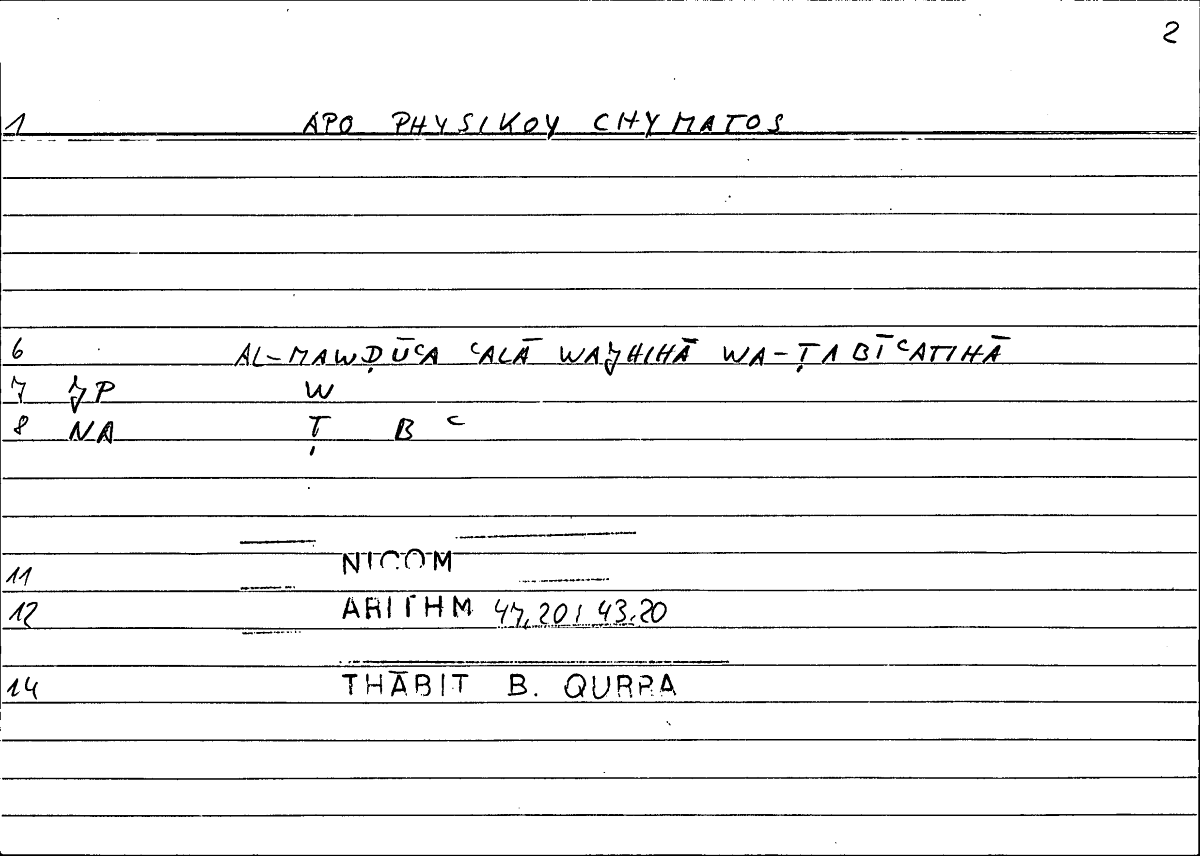 2
1 APO PHYSIKOY CHYMATOS
6 AL-MAWḌŪʿA ʿALĀ WAJHIHĀ WA-ṬABĪʿATIHĀ
7 JP W
8 NA Ṭ B ʿ
11 NICOM
12 ARITHM 47,20 / 43,20
14 THĀBIT B. QURRA